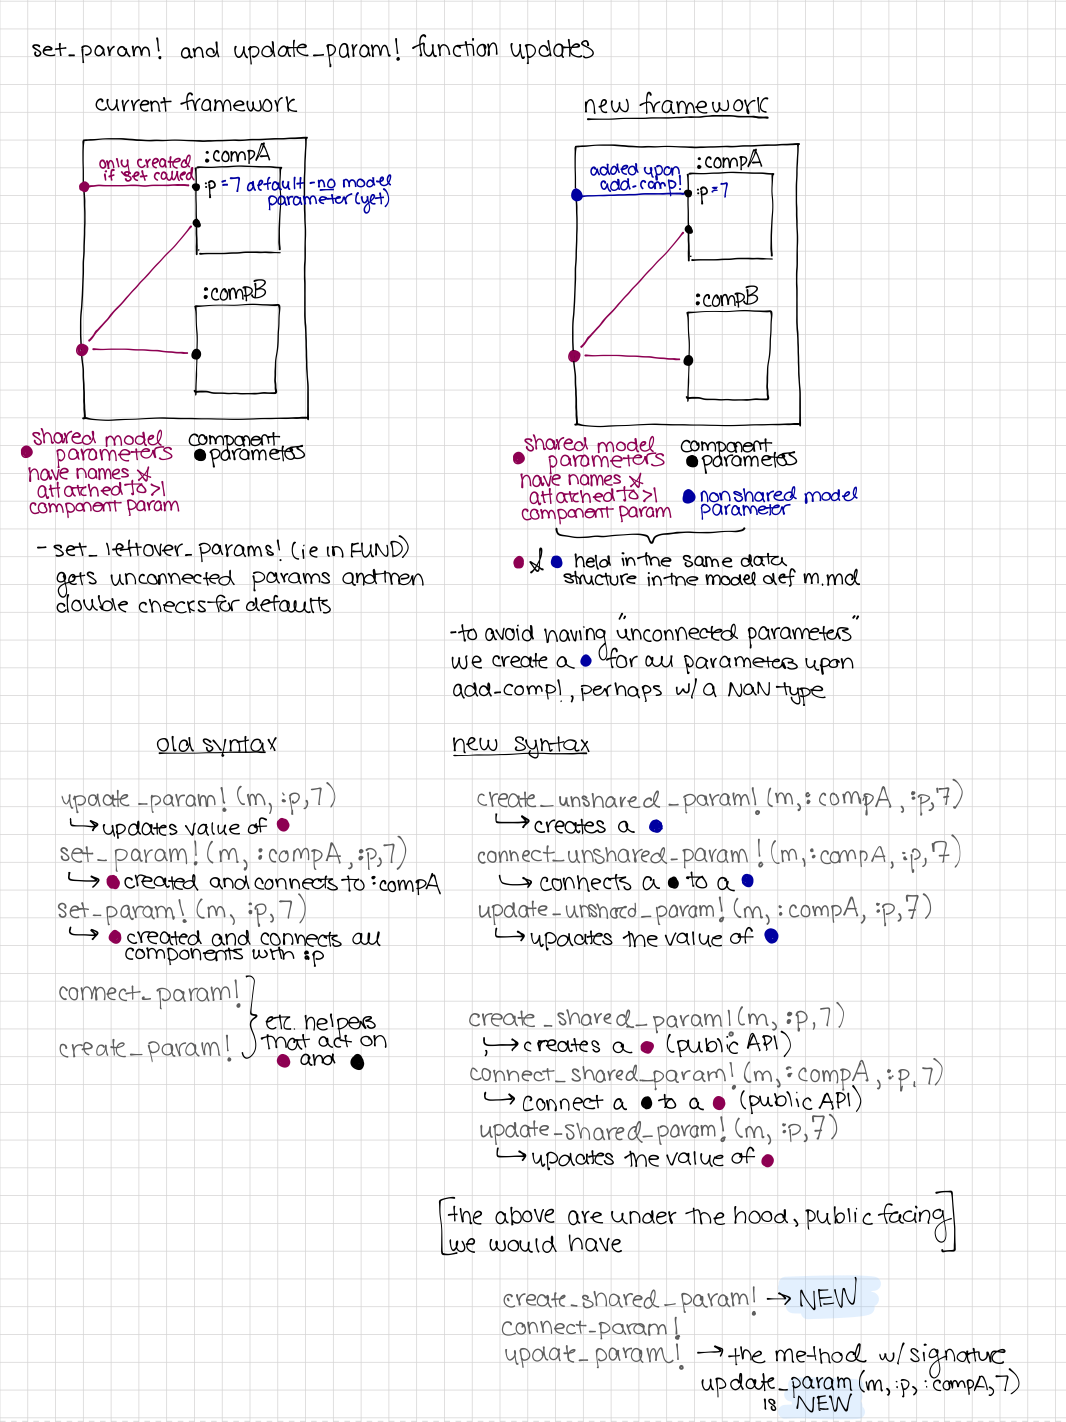 set_param! and update_param! function updates
current framework
only created
if set called
:compA
:p =7 default - no model
parameter (yet)
:compB
shared model
parameters
have names &
attatched to >1
component param
component
parameters
- set_leftover_params! (ie in FUND)
gets unconnected params and then
double checks for defaults
new framework
added upon
add-comp!
:compA
:p =7
:compB
shared model
parameters
have names &
attatched to >1
component param
component
parameters
nonshared model
parameter
& held in the same data
structure in the model def m.md
- to avoid having "unconnected parameters"
we create a for all parameters upon
add-comp!, perhaps w/ a NaN type
old syntax
update_param! (m, :p, 7)
↳ updates value of
set_param! (m, :compA, :p, 7)
↳ created and connects to :compA
set_param! (m, :p, 7)
↳ created and connects all
components with :p
connect_param!
create_param!
etc. helpers
that act on
and
new syntax
create_unshared_param! (m, :compA, :p, 7)
↳ creates a
connect_unshared_param! (m, :compA, :p, 7)
↳ connects a to a
update_unshared_param! (m, :compA, :p, 7)
↳ updates the value of
create_shared_param! (m, :p, 7)
↳ creates a (public API)
connect_shared_param! (m, :compA, :p, 7)
↳ connect a to a (public API)
update_shared_param! (m, :p, 7)
↳ updates the value of
[the above are under the hood, public facing
we would have]
create_shared_param! → NEW
connect_param!
update_param! → the method w/ signature
update_param (m, :p, :compA, 7)
is NEW